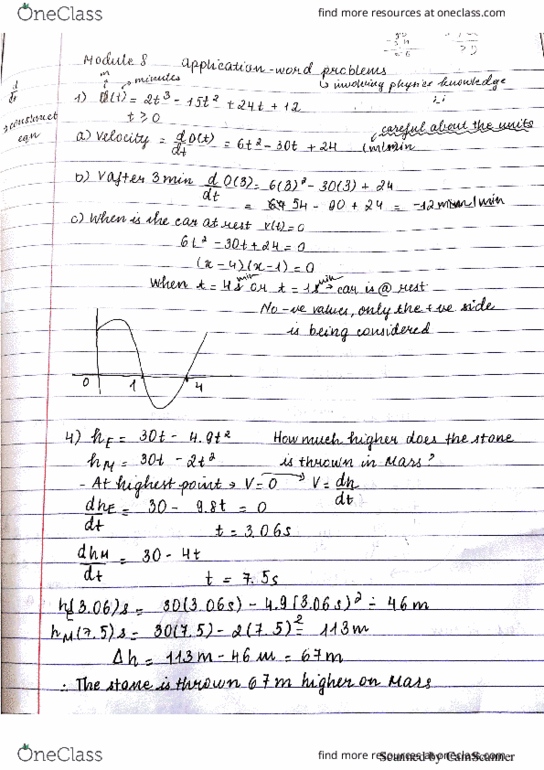 OneClass
find more resources at oneclass.com
Module 8 Application-word problems
↳ involving physics knowledge
m ↑ minutes
1) D(t) = 2t³ - 15t² + 24t + 12
t ≥ 0
d/dt
→ construct
eqn
careful about the units
a) Velocity = d/dt D(t) = 6t² - 30t + 24 (m/min
b) V after 3 min d/dt D(3) = 6(3)² - 30(3) + 24
= 54 - 90 + 24 = -12 m/min
c) When is the car at rest v(t) = 0
6t² - 30t + 24 = 0
(x - 4)(x - 1) = 0
When t = 4 min or t = 1 min → car is @ rest
No -ve values, only the +ve side
is being considered
0 1 4
4) hE = 30t - 4.9t² How much higher does the stone
hM = 30t - 2t² is thrown in Mars?
- At highest point → V = 0 → V = dh/dt
dhE/dt = 30 - 9.8t = 0
t = 3.06s
dhM/dt = 30 - 4t
t = 7.5s
hE(3.06)s = 30(3.06s) - 4.9(3.06s)² = 46m
hM(7.5)s = 30(7.5) - 2(7.5)² = 113m
Δh = 113m - 46m = 67m
∴ The stone is thrown 67m higher on Mars
OneClass
find more resources at oneclass.com
Scanned by CamScanner